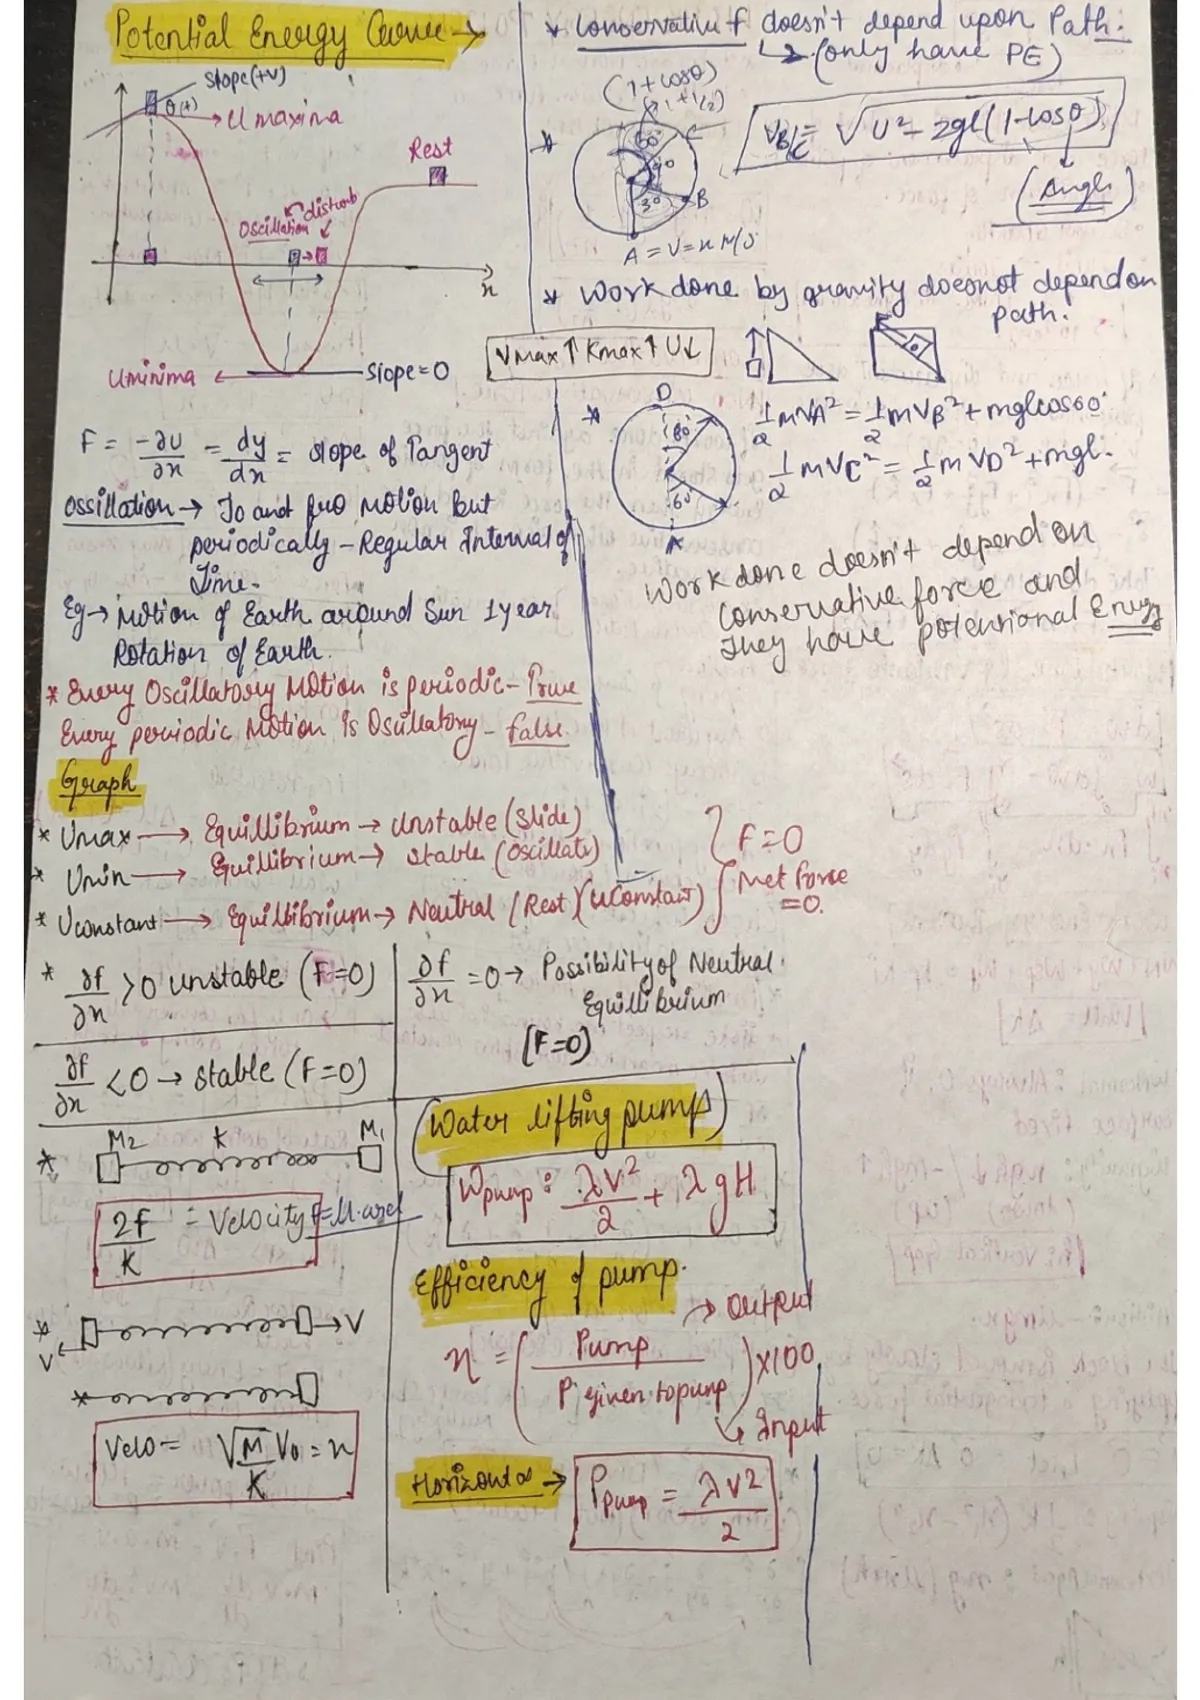 Potential Energy Curve →
Slope (+v)
θ(+)
→ U maxima
Rest
disturb
Oscillation
x
Uminima ←
Slope = 0
F = -∂U/∂x = dy/dx = slope of Tangent
Ossillation → To and fro Motion but
periodically - Regular Interval of
Time.
Eg → Motion of Earth around Sun 1 year
Rotation of Earth.
* Every Oscillatory Motion is periodic - True
Every periodic Motion is Oscillatory - false.
Graph
* Umax → Equillibrium → Unstable (Slide)
* Umin → Equillibrium → stable (Oscillate)
* Uconstant → Equillibrium → Neutral (Rest) (UConstant)
F = 0
Net force
= 0.
* ∂f/∂x > 0 unstable (F=0)
∂f/∂x < 0 → stable (F=0)
∂f/∂x = 0 → Possibility of Neutral
Equillibrium
[F=0]
* M2 K M1
2F/K = Velocity F=M.
* V V
*
Velo = √M/K V0 = x
* Conservative f doesn't depend upon Path.
↳ (only have PE)
(1+cosθ)
(1+1/2)
60°
30°
B
* VB/C = √U²-2gl(1-cosθ)
(Angle)
A = V = x M/s
* Work done by gravity doesnot depend on
path.
Vmax ↑ Kmax ↑ U↓
* D
60°
A
1/2 mVA² = 1/2 mVB² + mglcos60°
1/2 mVC² = 1/2 mVD² + mgl.
Work done doesn't depend on
Conservative force and
They have potensional Enugy
(Water lifting pump)
Wpump: λv²/2 + λgH
Efficiency of pump.
→ OUtput
η = (Pump/P given to pump) x100
↳ Input
Horizontal → Ppump = λv²/2